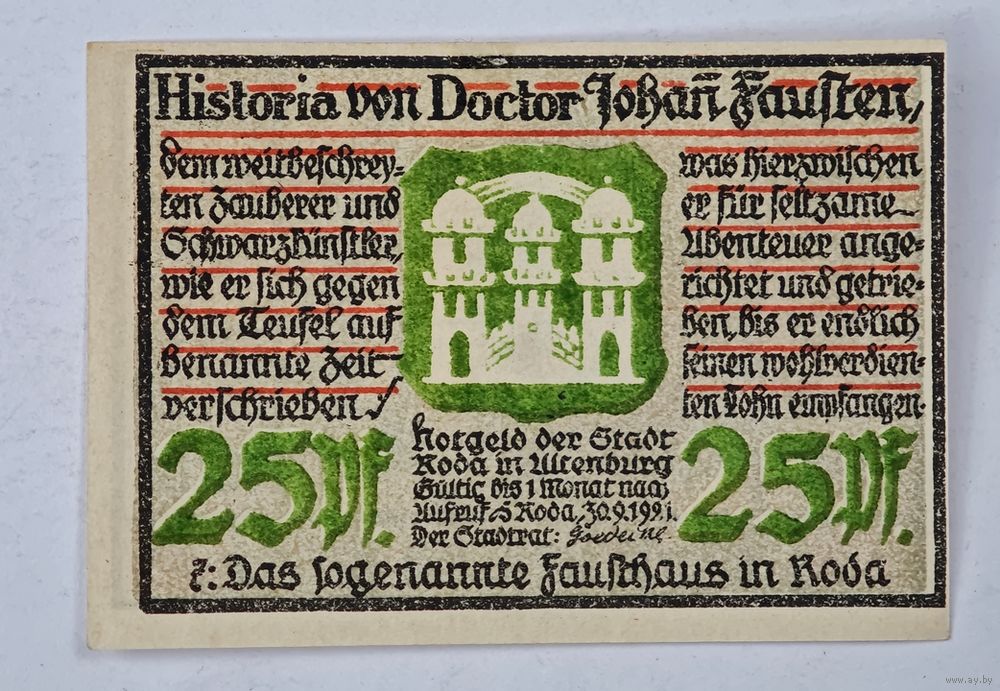 Historia von Doctor Johañ Fausten,
dem weitbeschrey-
ten Zauberer und
Schwarzkünstler,
wie er sich gegen
dem Teufel auf
benannte Zeit
verschrieben./
was hierzwischen
er für seltzame
Abenteuer ange-
richtet und getrie-
ben, bis er endlich
seinen wohlverdien-
ten Lohn empfangen.
25 Pf.
Notgeld der Stadt
Roda in Altenburg
Gültig bis 1 Monat nach
Aufruf S Roda, 30.9.1921.
Der Stadtrat:
25 Pf.
:Das sogenannte Fausthaus in Roda
www.ay.by